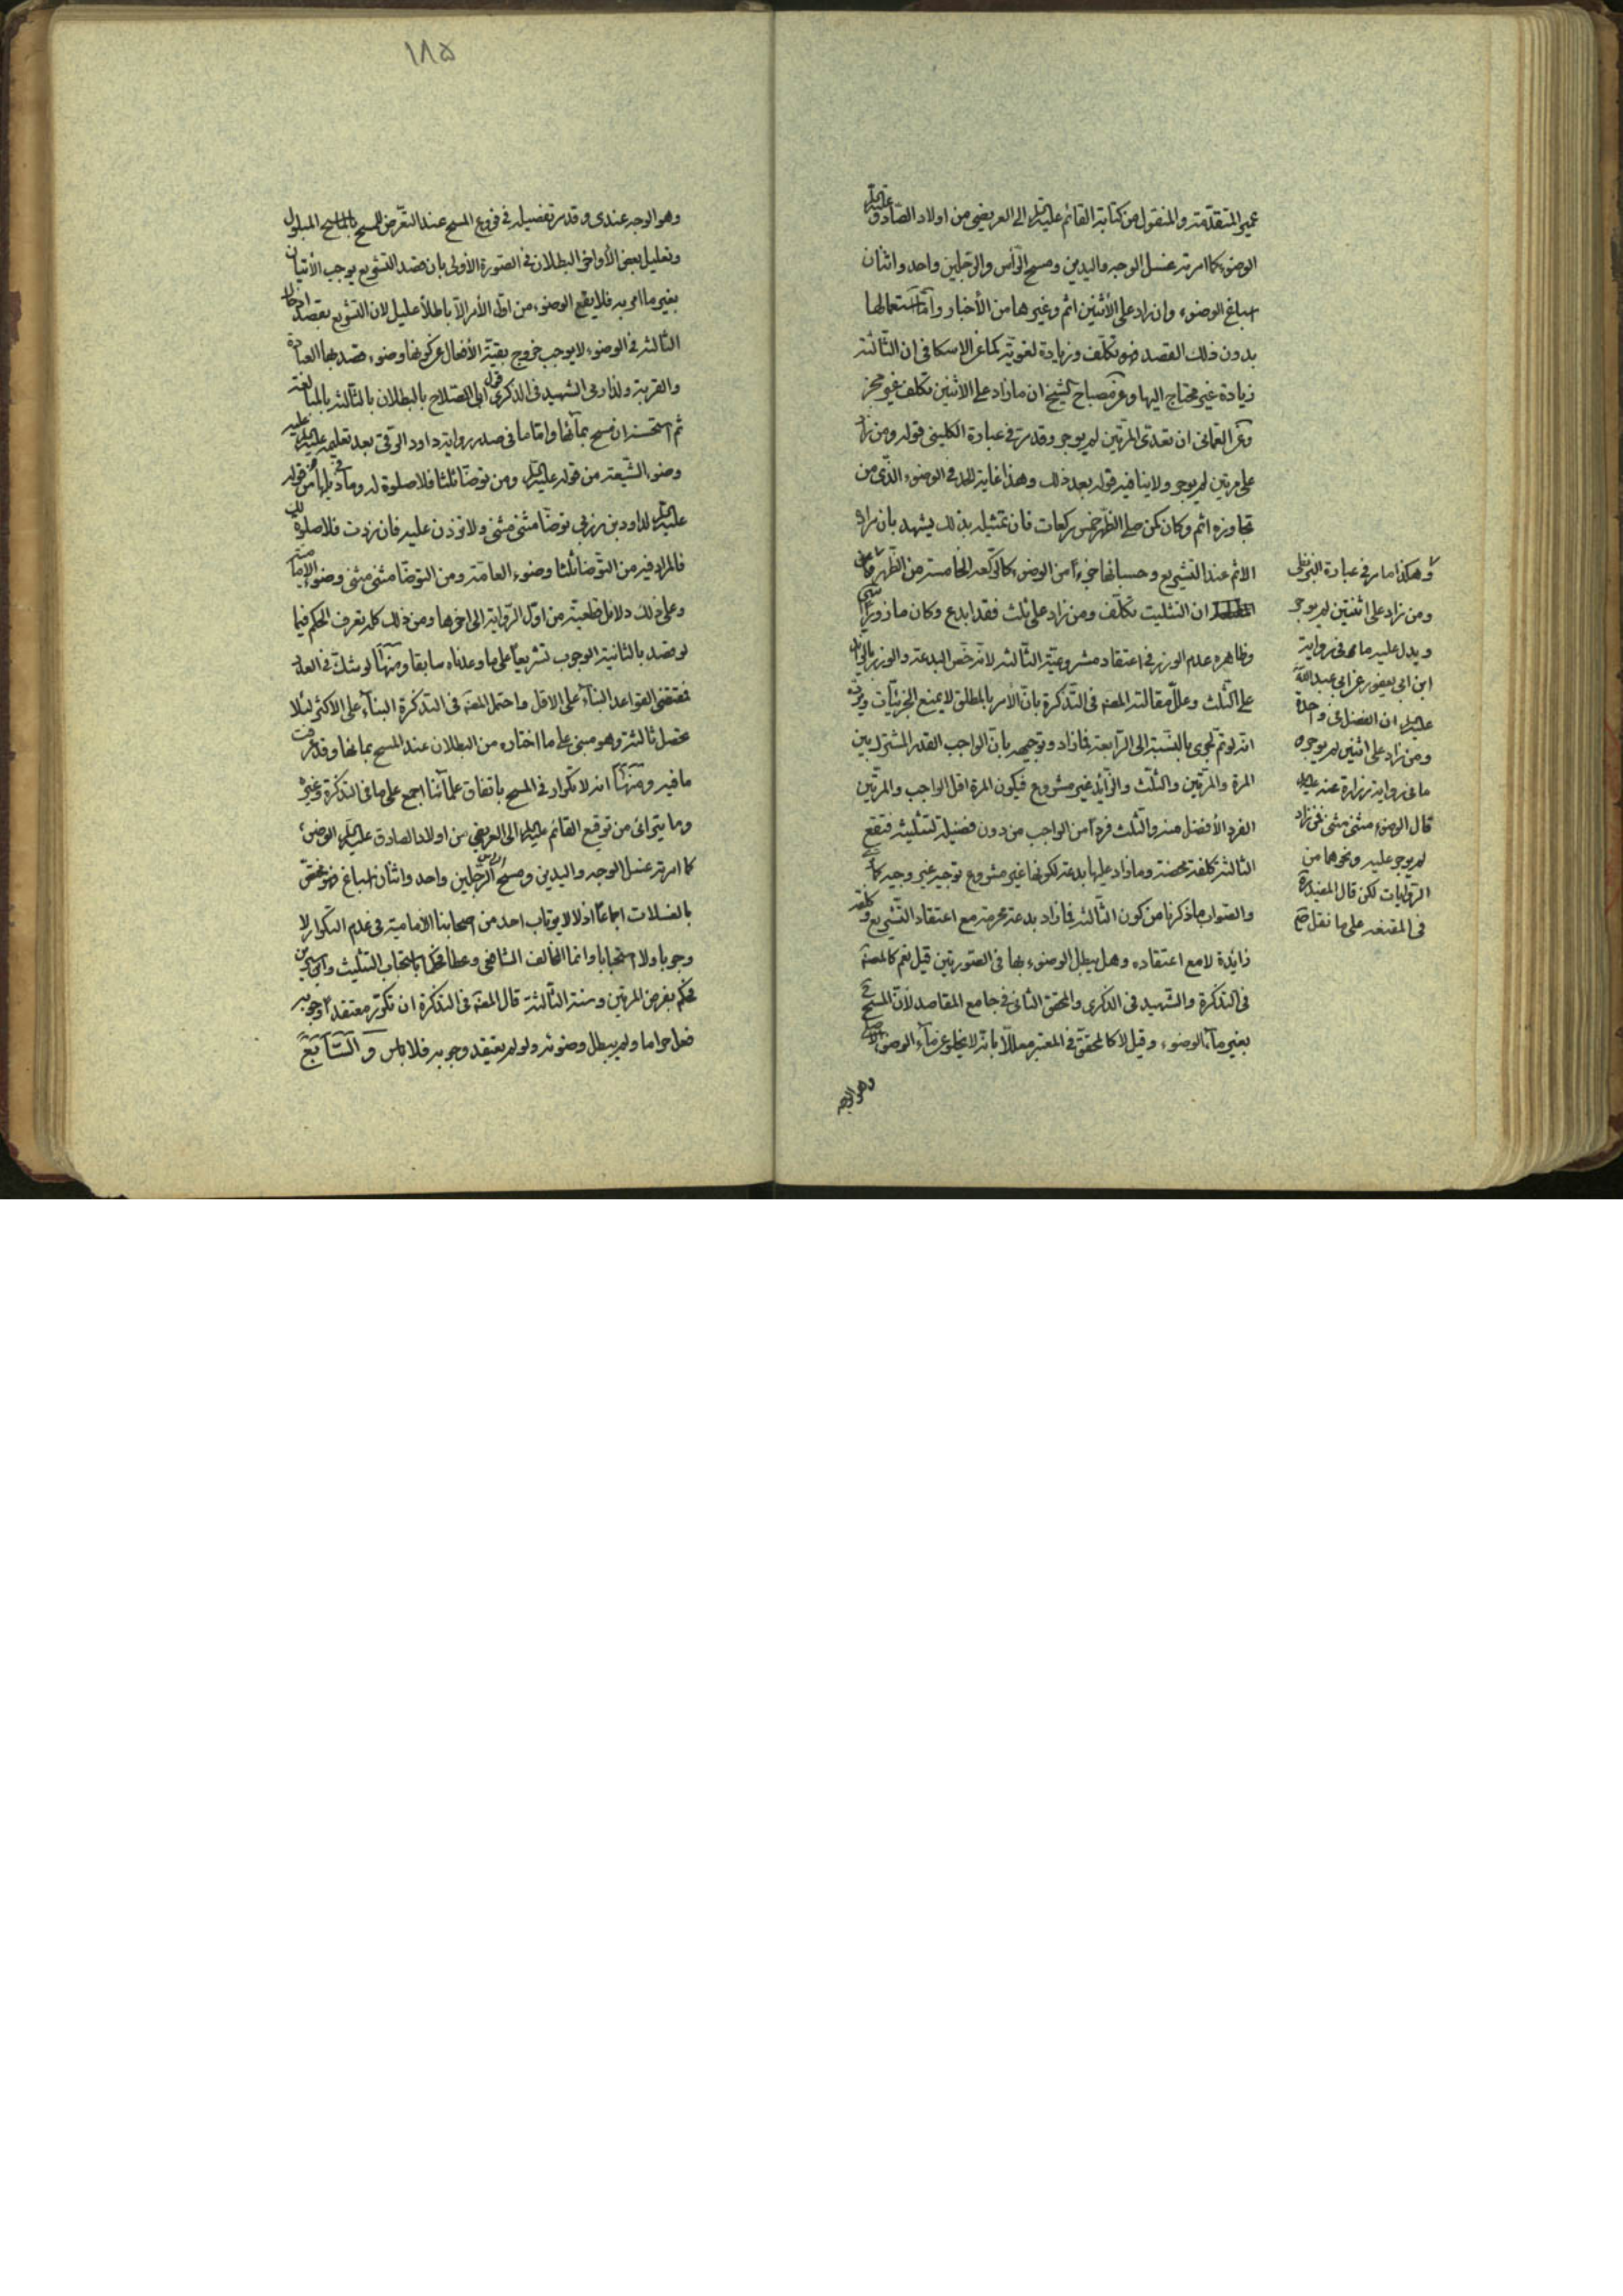 عمير المتقدمة والمنقول من كتابة القائم عليه السلم الى العريضي من اولاد الصادق عليه السلم
الوضوء كما امر به غسل الوجه واليدين ومسح الرأس والرجلين واحد واثنان
اسباغ الوضوء وان زاد على الأثنين اثم وغيرها من الأخبار وامّا استعمالها
بدون ذلك القصد فهو تكلّف وزيادة لغويّة كما عن الاسكافي ان الثالثة
زيادة غير محتاج اليها وعن مصباح الشيخ ان ما زاد على الاثنين تكلف غير مجز
وعن العماني ان تعدى المرتين لم يوجر وقد مرّ في عبارة الكليني قوله ومن زاد
على مرتين لم يوجر ولا ينافيه قوله بعد ذلك وهذا غاية الحد في الوضوء الذي من
تجاوزه اثم وكان كمن صلى الظهر خمس ركعات فان تمثيله بذلك يشهد بان مراده
الاثم عند التشريع وحسبانها جزءا من الوضوء كالركعة الخامسة من الظهر
ان التثليث تكلّف ومن زاد على ثلث فقد ابدع وكان مأزورا
وظاهره عدم الوزر في اعتقاد مشروعية الثالثة لانه خص البدعة والوزر بالزائد
على الثلث وعلل مقالته المصنف في التذكرة بان الأمر بالمطلق لا يمنع الجزئيات ويرده
انه لو تم لجرى بالنسبة الى الرابعة فما زاد وتوجيهه بان الواجب القدر المشترك بين
المرة والمرتين والثلث والزائد غير مشروع فيكون المرة اقل الواجب والمرتين
الفرد الأفضل منه والثلث فردا من الواجب من دون فضيلة لتثليثه فتقع
الثالثة كلفة محضة وما زاد عليها بدعة لكونها غير مشروع توجيه غير وجيه
والصواب ما ذكرنا من كون الثالثة فما زاد بدعة محرمة مع اعتقاد التشريع وكلفة
زائدة لا مع اعتقاده وهل يبطل الوضوء بها في الصورتين قيل نعم كالمصنف
في التذكرة والشهيد في الذكرى والمحقق الثاني في جامع المقاصد لأن المسح ح
بغير ماء الوضوء وقيل لا كالمحقق في المعتبر معللا بانه لا يخلو عن ماء الوضوء
وهو الوجه
وهكذا ما مر في عبارة البزنطي
ومن زاد على اثنتين لم يوجر
ويدل عليه ما في رواية
ابن ابي يعفور عن ابي عبد الله
عليه السلم ان الفضل في واحدة
ومن زاد على اثنين لم يوجر
ما في رواية زرارة عنه عليه السلم
قال الوضوء مثنى مثنى فمن زاد
لم يوجر عليه ونحوها من
الروايات لكن قال المفيد ره
في المقنعة على ما نقل صح
١٨٥
وهو الوجه عندي وقد مر تفصيله في فروع المسح عند التعرض للمسح بالماسح المبلول
وتعليل بعض الأواخر البطلان في الصورة الأولى بان قصد التشريع يوجب الأتيان
بغير ما امر به فلا يقع الوضوء من اول الأمر الا باطلا عليل لان التشريع بقصد ادخال
الثالثة في الوضوء لا يوجب خروج بقية الأفعال عن كونها وضوء قصد بها العبادة
والقربة ولذا روى الشهيد في الذكرى قول ابي الصلاح بالبطلان بالثالثة بالمبالغة
ثم استحسنه ان مسح بمائها واما ما في صدر رواية داود الرقي بعد تعليمه عليه السلم
وضوء الشيعة من قوله عليه السلم ومن توضأ ثلثا فلا صلوة له وما في ذيلها من قوله
عليه السلم لداود بن زربي توضأ مثنى مثنى ولا تزدن عليه فان زدت فلا صلوة لك
فالمراد فيه من التوضأ ثلثا وضوء العامة ومن التوضأ مثنى مثنى وضوء الامامية
وعلى ذلك دلائل قطعية من اول الرواية الى اخرها ومن ذلك كله تعرف الحكم فيما
لو قصد بالثانية الوجوب تشريعا على ما وعدناه سابقا ومنها لو شك في العدد
فمقتضى القواعد البناء على الاقل واحتمل المصنف في التذكرة البناء على الاكثر لئلا
تحصل ثالثة وهو مبني على ما اختاره من البطلان عند المسح بمائها وقد عرفت
ما فيه ومنها انه لا تكرار في المسح باتفاق علمائنا اجمع على ما في التذكرة وغيره
وما يترائى من توقيع القائم عليه السلم الى العريضي من اولاد الصادق عليه السلم الوضوء
كما امر به غسل الوجه واليدين ومسح الرأس والرجلين واحد واثنان اسباغ فهو مختص
بالغسلات اجماعا اذ لا يرتاب احد من اصحابنا الأمامية في عدم التكرار لا
وجوبا ولا استحبابا وانما المخالف الشافعي وعطا فحكما باستحباب التثليث وابن سيرين
فحكم بفرض المرتين وسنة الثالثة قال المصنف في التذكرة ان تكرر معتقدا وجوبه
فعل حراما ولم يبطل وضوئه ولو لم يعتقد وجوبه فلا بأس والسابع